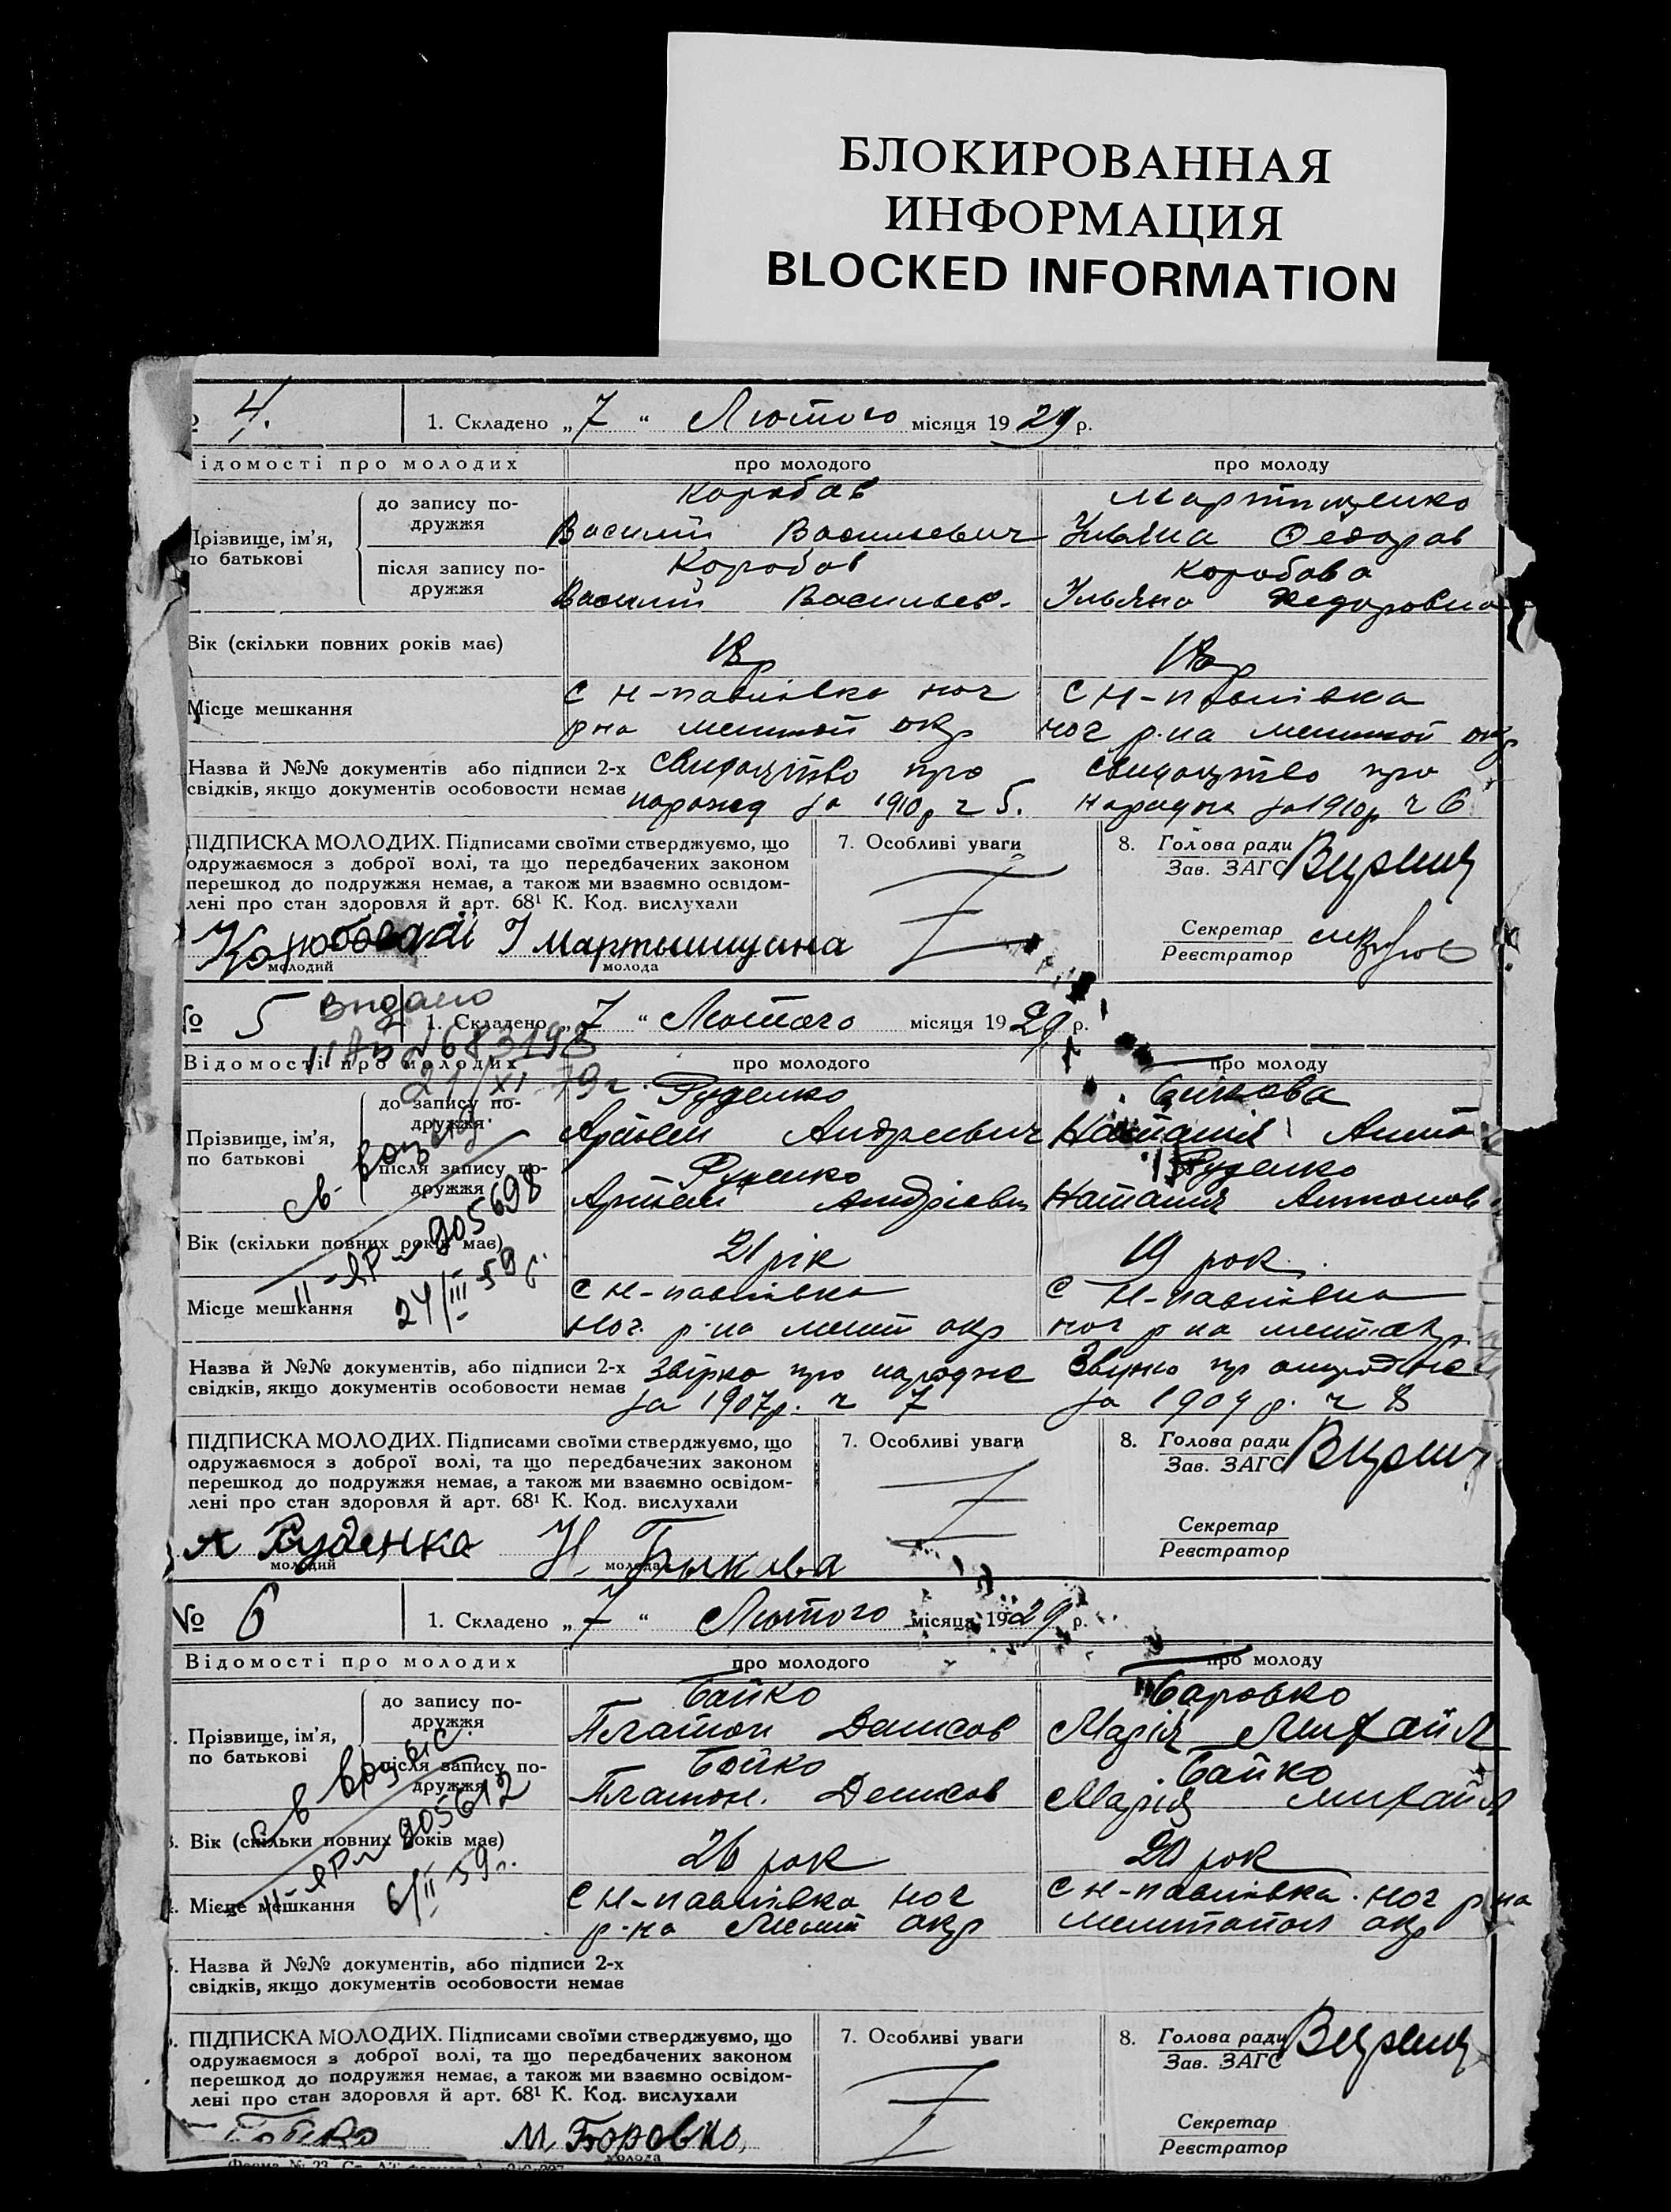 БЛОКИРОВАННАЯ
ИНФОРМАЦИЯ
BLOCKED INFORMATION
4. 1. Складено „7“ Лютого місяця 1929 р.
ідомості про молодих про молодого про молоду
Прізвище, ім'я, по батькові
до запису подружжя
Коробов Мартищенко
Василий Васильевич Ульяна Федоров
після запису подружжя
Коробов Коробова
Василий Васильев. Ульяна Федоровна
Вік (скільки повних років має) 18 р 18 р
Місце мешкання
с Н-павлівка ног с Н-павлівка
р на мелитой окр ног р-на мелитой окр
Назва й №№ документів або підписи 2-х свидоцтво про свидоцтво про
свідків, якщо документів особовости немає народж за 1910 р ч 5. народжен за 1910 р ч 6
ПІДПИСКА МОЛОДИХ. Підписами своїми стверджуємо, що
одружаємося з доброї волі, та що передбачених законом
перешкод до подружжя немає, а також ми взаємно освідом-
лені про стан здоровля й арт. 68¹ К. Код. вислухали
молодий молода
7. Особливі уваги
8. Голова ради
Зав. ЗАГС
Секретар
Реєстратор
№ 5 видано 1. Складено „7“ Лютого місяця 1929 р.
№ 683198
21/XI 79 г.
Відомості про молодих про молодого про молоду
Прізвище, ім'я,
по батькові
до запису по-
дружжя
Руденко Бикова
Артьем Андреевич Наталія Антон
після запису по-
дружжя
Руденко Руденко
Артьем Андріевич Наталия Антонов
905698
24/III 59 г.
Вік (скільки повних років має) 21 рік 19 рок
Місце мешкання
с Н-павлівка с Н-павлівка
Ног. р-на мелит окр ног р на мелит окр
Назва й №№ документів, або підписи 2-х Звірка про народже
свідків, якщо документів особовости немає за 1907 р. ч 7 за 1909 р. ч 8
ПІДПИСКА МОЛОДИХ. Підписами своїми стверджуємо, що
одружаємося з доброї волі, та що передбачених законом
перешкод до подружжя немає, а також ми взаємно освідом-
лені про стан здоровля й арт. 68¹ К. Код. вислухали
А Руденко Н. Быкова
молодий молода
7. Особливі уваги
8. Голова ради
Зав. ЗАГС
Секретар
Реєстратор
№ 6 1. Складено „7“ Лютого місяця 1929 р.
Відомості про молодих про молодого про молоду
Прізвище, ім'я,
по батькові
до запису по-
дружжя
Бойко Боровко
Платон Денисов Марія Михайл
після запису по-
дружжя
Бойко Бойко
Платон. Денисов Марія Михайл
905612
6/II 59 г.
3. Вік (скільки повних років має) 26 рок 20 рок
Місце мешкання
с Н-павлівка ног с Н-павлівка. ног р на
р-на Мелит окр мелитопол окр
Назва й №№ документів, або підписи 2-х
свідків, якщо документів особовости немає
ПІДПИСКА МОЛОДИХ. Підписами своїми стверджуємо, що
одружаємося з доброї волі, та що передбачених законом
перешкод до подружжя немає, а також ми взаємно освідом-
лені про стан здоровля й арт. 68¹ К. Код. вислухали
Бойко М. Боровко
молода
7. Особливі уваги
8. Голова ради
Зав. ЗАГС
Секретар
Реєстратор